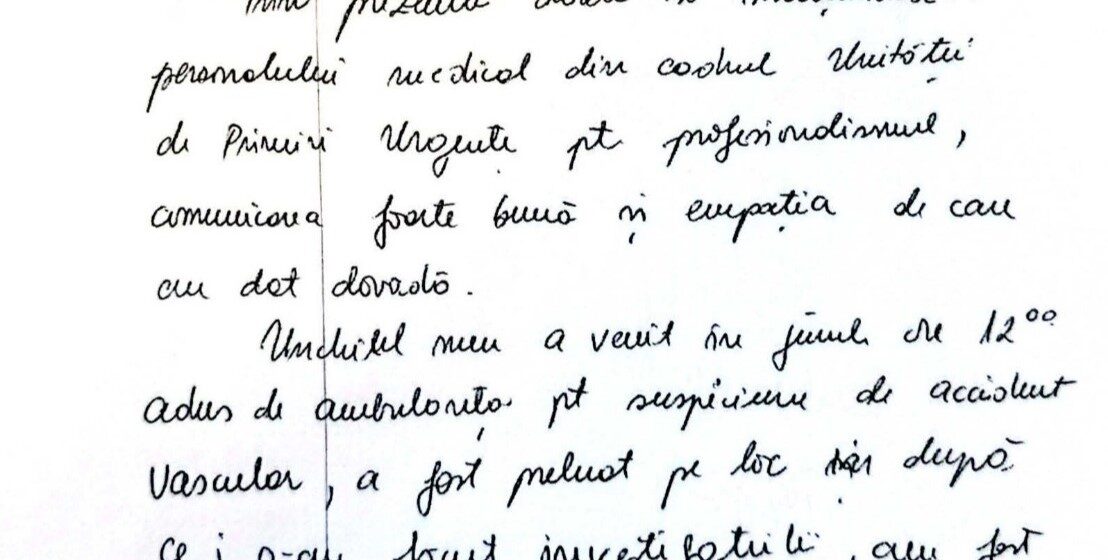 Prin prezenta
personalului medical din cadrul Unității
de Primiri Urgențe pt profesionalismul,
comunicarea foarte bună și empatia de care
au dat dovadă.
Unchiul meu a venit în jurul ore 12⁰⁰
adus de ambulanța pt suspiciune de accident
vascular, a fost preluat pe loc iar după
ce i s-au făcut investigațiile, am fost